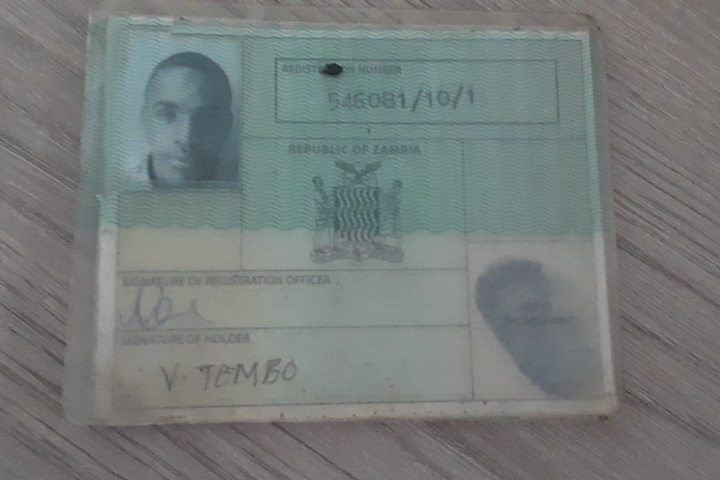 REGISTRATION NUMBER
546081/10/1
REPUBLIC OF ZAMBIA
SIGNATURE OF REGISTRATION OFFICER
SIGNATURE OF HOLDER
V. TEMBO